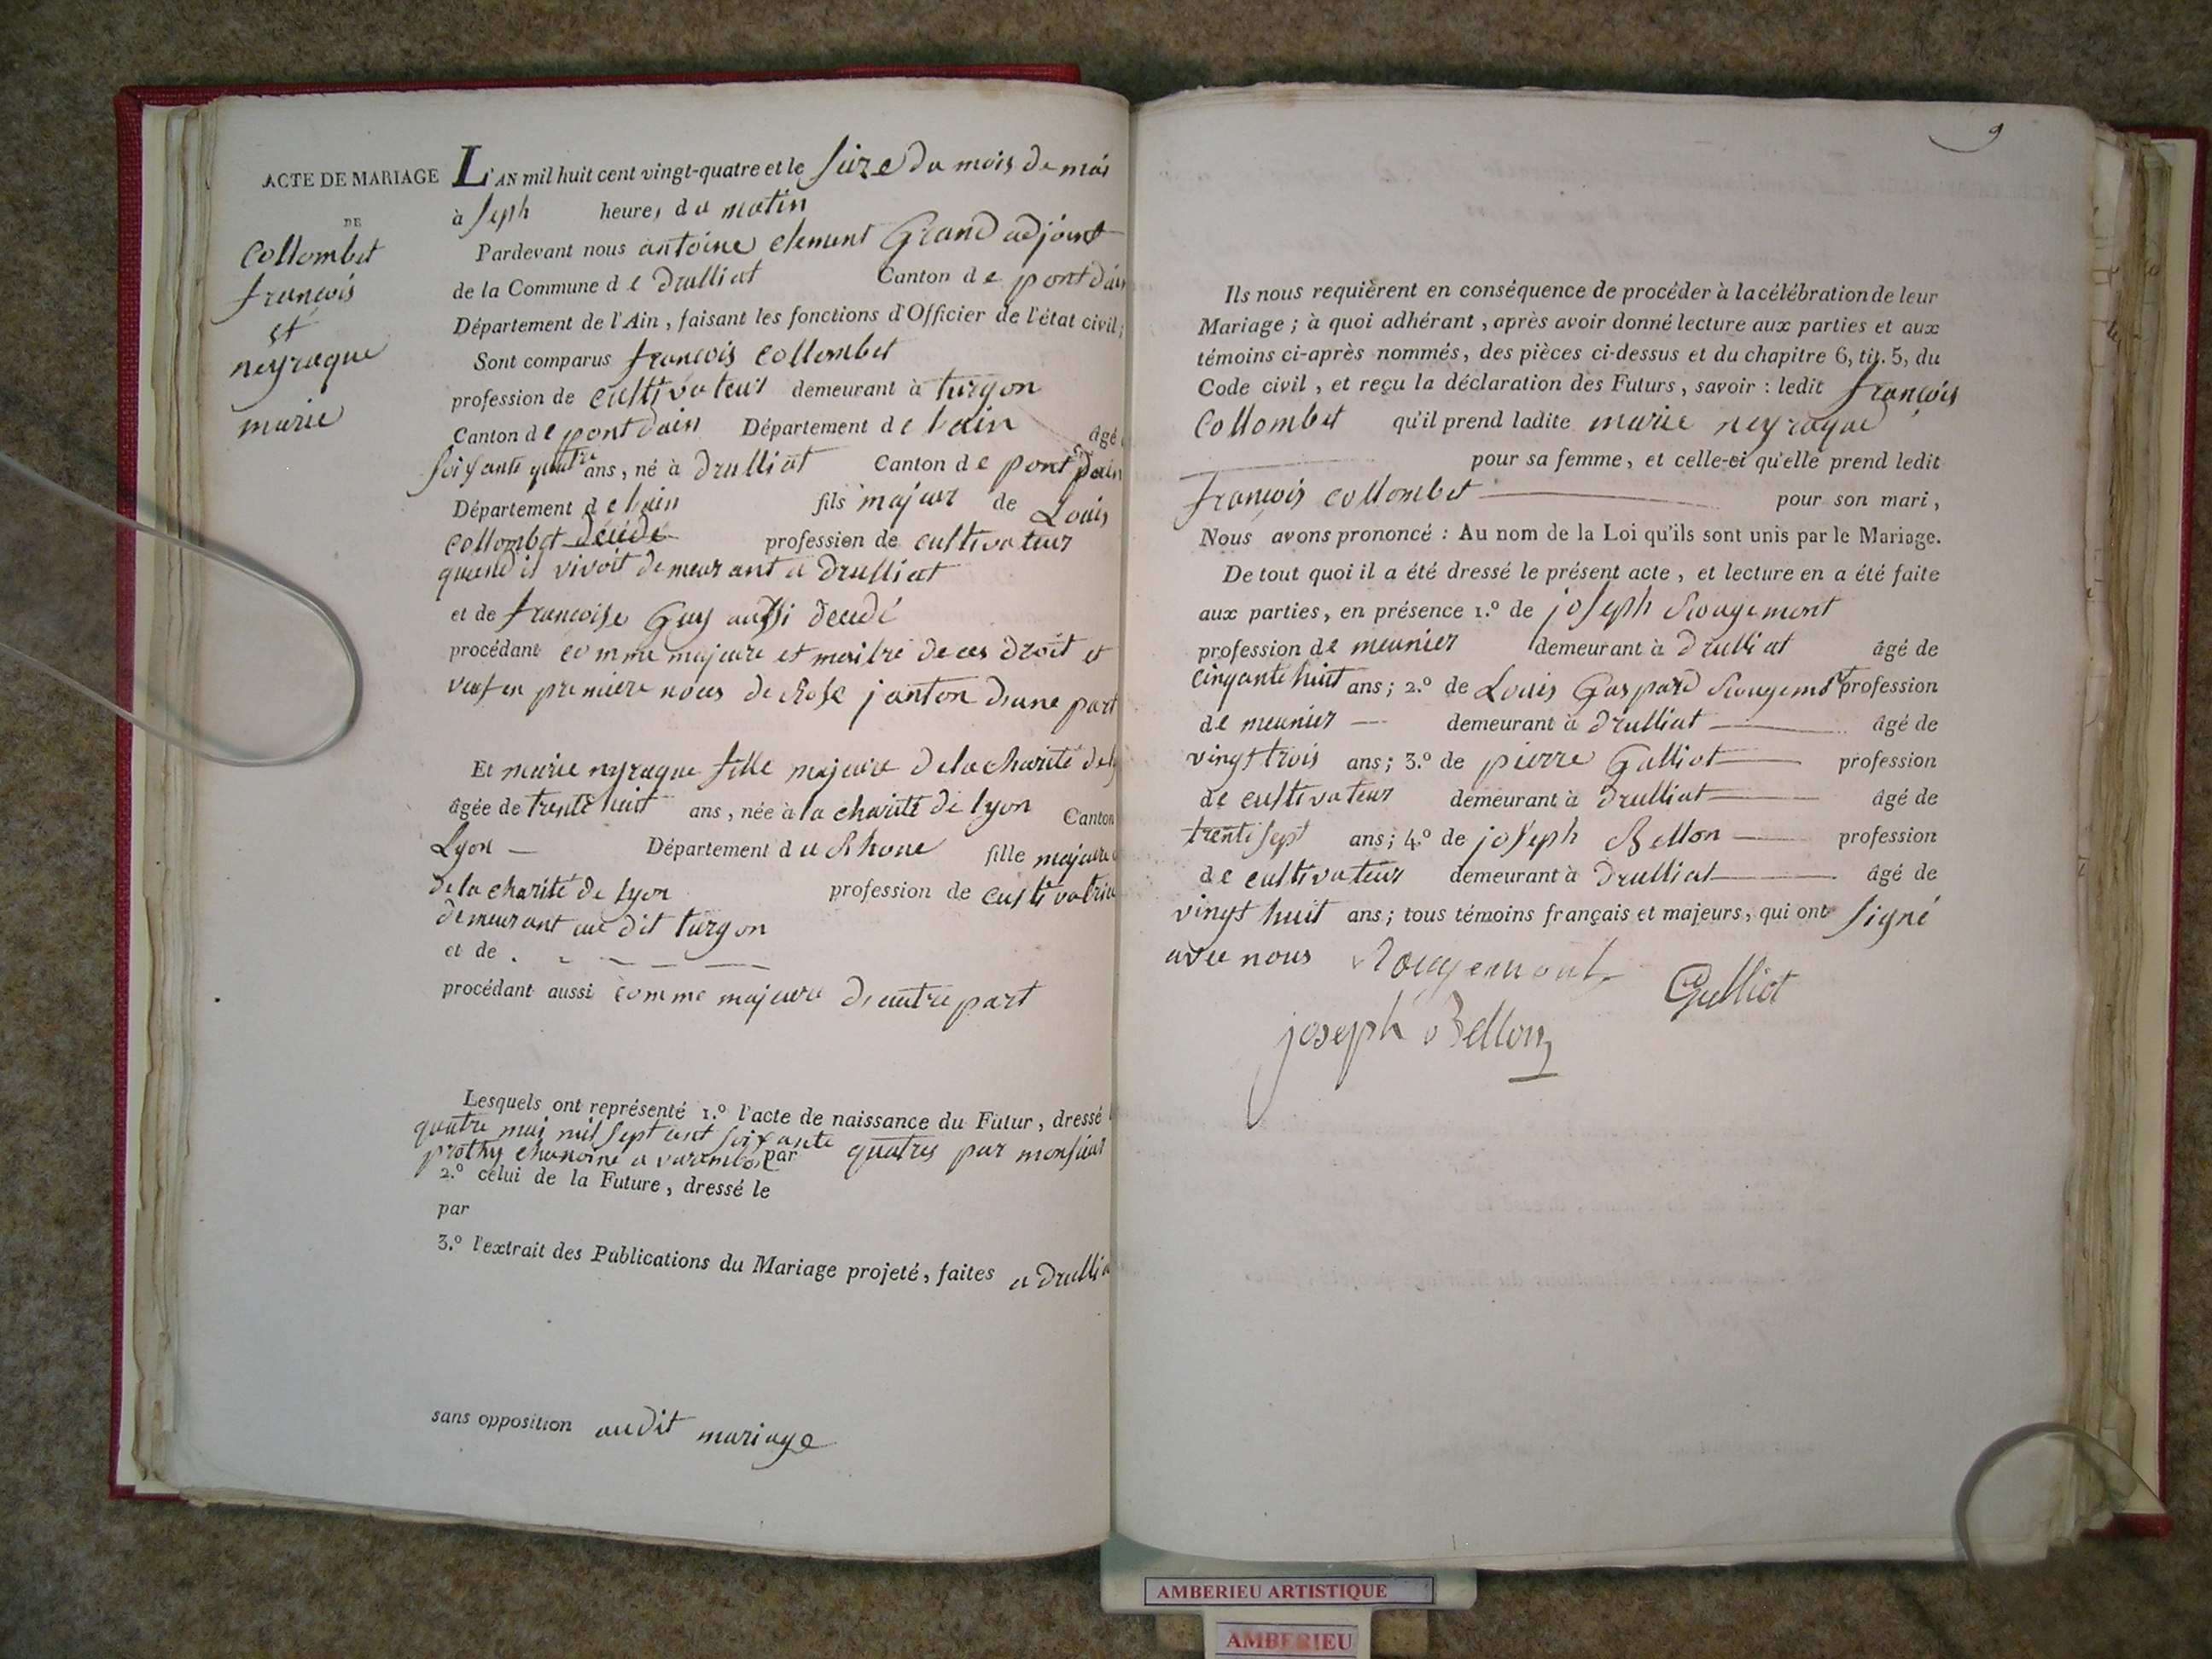 ACTE DE MARIAGE
DE
Collombet
françois
et
neyraque
marie
L'AN mil huit cent vingt-quatre et le seize du mois de mai
à sept heures du matin
Pardevant nous antoine clement Grand adjoint
de la Commune de Drulliat Canton de pont dain
Département de l'Ain, faisant les fonctions d'Officier de l'état civil;
Sont comparus françois collombet
profession de cultivateur demeurant à turgon
Canton de pont dain Département de lain âgé
soixante quatre ans, né à Drulliat Canton de pont dain
Département de lain fils majeur de Louis
collombet décédé profession de cultivateur
quand il vivoit demeurant a Drulliat
et de françoise Guy aussi décédé
procédant comme majeure et maitre de ces droit et
veuf en premiere noces de Rose janton d'une part
Et marie nyraque fille majeure de la charité de
âgée de trente huit ans, née à la charité de lyon Canton
Lyon Département du Rhone fille majeure
de la charité de Lyon profession de cultivatrice
demeurant au dit turgon
et de
procédant aussi comme majeure d'autre part
Lesquels ont représenté 1.º l'acte de naissance du Futur, dressé
quatre mai mil sept cent soixante quatres par monsieur
prothy chanoine a varambon par
2.º celui de la Future, dressé le
par
3.º l'extrait des Publications du Mariage projeté, faites a Drullia
sans opposition audit mariage
9
Ils nous requièrent en conséquence de procéder à la célébration de leur
Mariage; à quoi adhérant, après avoir donné lecture aux parties et aux
témoins ci-après nommés, des pièces ci-dessus et du chapitre 6, tit. 5, du
Code civil, et reçu la déclaration des Futurs, savoir : ledit françois
Collombet qu'il prend ladite marie neyraque
pour sa femme, et celle-ci qu'elle prend ledit
françois collombet pour son mari,
Nous avons prononcé : Au nom de la Loi qu'ils sont unis par le Mariage.
De tout quoi il a été dressé le présent acte, et lecture en a été faite
aux parties, en présence 1.º de joseph Rougemont
profession de meunier demeurant à Drulliat âgé de
cinqante huit ans; 2.º de Louis Gaspard Rougemot profession
de meunier demeurant à Drulliat âgé de
vingt trois ans; 3.º de pierre Galliot profession
de cultivateur demeurant à Drulliat âgé de
trente sept ans; 4.º de joseph Bellon profession
de cultivateur demeurant à Drulliat âgé de
vingt huit ans; tous témoins français et majeurs, qui ont signé
avec nous Rougemont Galliot
joseph Bellon
AMBERIEU ARTISTIQUE
AMBERIEU